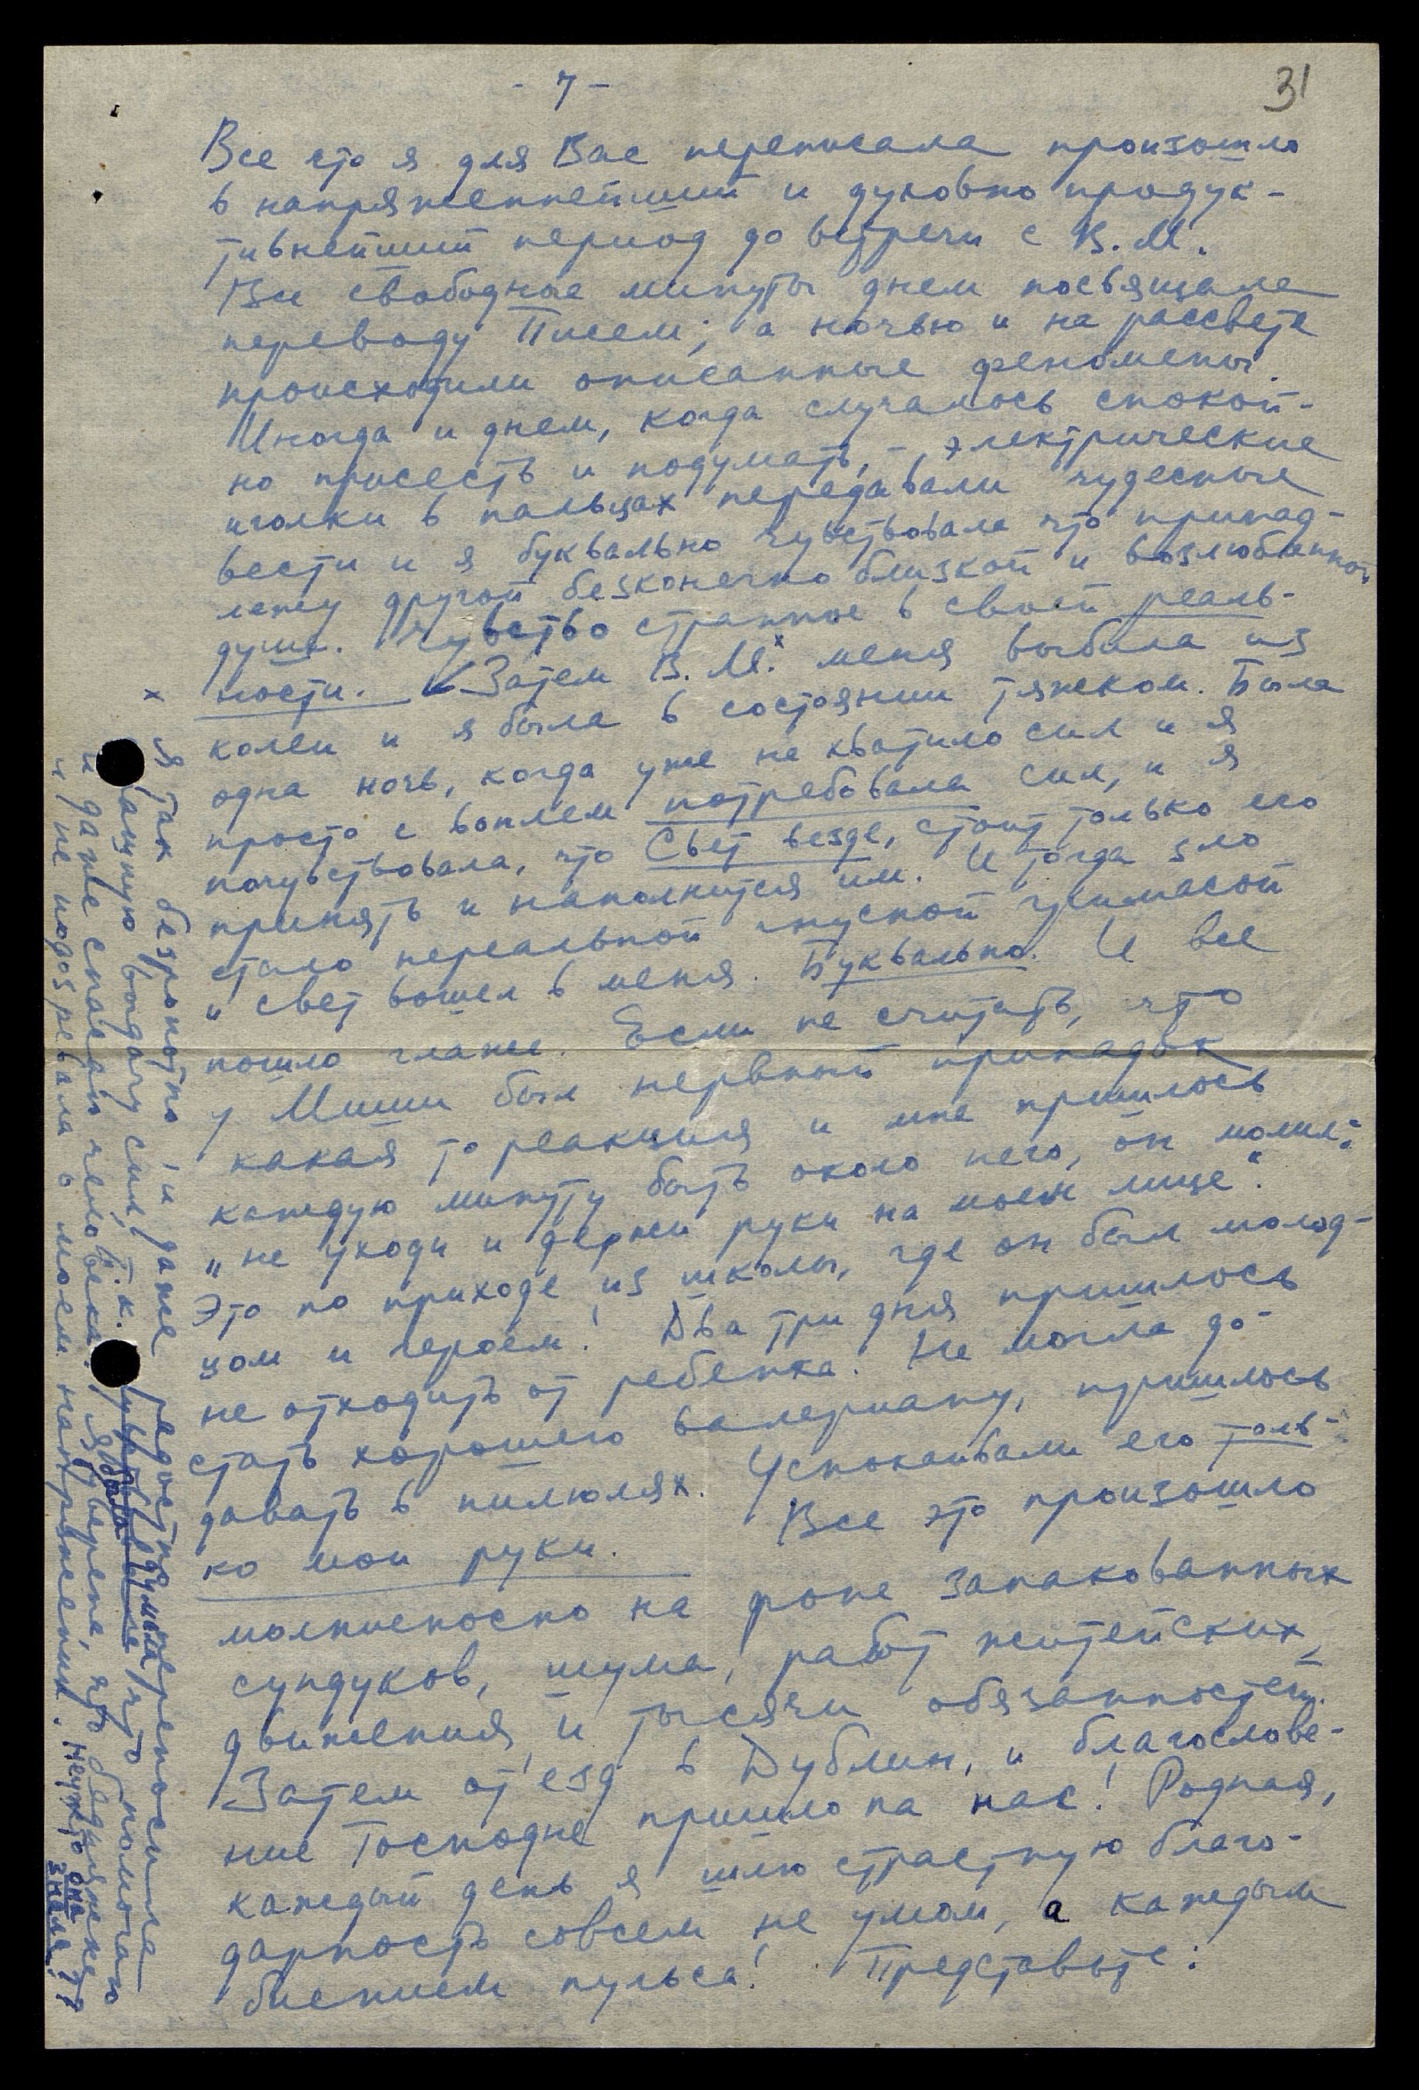 - 7 -
31
Все что я для Вас переписала произошло
в напряженнейший и духовно продук-
тивнейший период до встречи с В.М.
Все свободные минуты днем посвящала
переводу Писем; а ночью и на рассвете
происходили описанные феномены.
Иногда и днем, когда случалось спокой-
но присесть и подумать, - электрические
иголки в пальцах передавали чудесные
вести и я буквально чувствовала что принад-
лежу другой безконечно близкой и возлюбленной
душе. Чувство странное в своей реаль-
ности. Затем В.М.х меня выбила из
колеи и я была в состоянии тяжком. Была
одна ночь, когда уже не хватило сил и я
просто с воплем потребовала сил, и я
почувствовала, что Свет везде, стоит только его
принять и наполнится им. И тогда зло
стало нереальной гнусной гримасой
и свет вошел в меня. Буквально. И все
пошло глаже. Если не считать, что
у Миши был нервный припадок
какая то реакция и мне пришлось
каждую минуту быть около него, он молил:
„не уходи и держи руки на моем лице".
Это по приходе из школы, где он был молод-
цом и героем! Два три дня пришлось
не отходить от ребенка. Не могла до-
стать хорошего валериану, пришлось
давать в пилюлях. Успокаивали его толь-
ко мои руки. Все это произошло
молниеносно на фоне запакованных
сундуков, шума, работ житейских,
движения и тысячи обязанностей.
Затем от'езд в Дублин, и благослове-
ние Господне пришло на нас! Родная,
каждый день я шлю страстную благо-
дарность совсем не умом, а каждым
биением пульса! Представьте:
х Я так безропотно и даже радостно переносила
ащную выдачу сил, т.к. думала что помогаю
и даже спасаю человека. Я уверена, что бедняжка
и не подозревала о моем напряжении. Неужто она
знала??